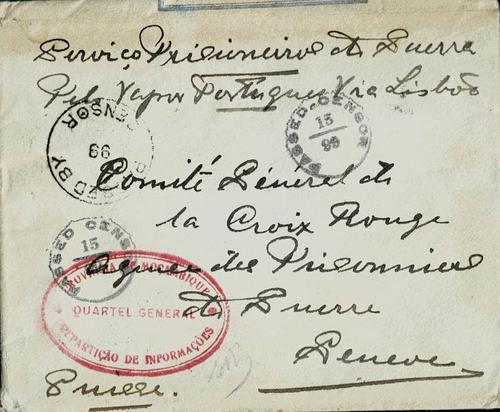 Serviço Prisioneiros de Guerra
Pelo Vapor Portuguez Via Lisboa
PASSED BY CENSOR
99
PASSED CENSOR
15
99
Comité Géneral de
la Croix Rouge
PASSED CENS
15
Agence des Prisonniers
de Guerre
PROVINCIA DE MOÇAMBIQUE
QUARTEL GENERAL
REPARTIÇÃO DE INFORMAÇÕES
Geneve
Suisse.